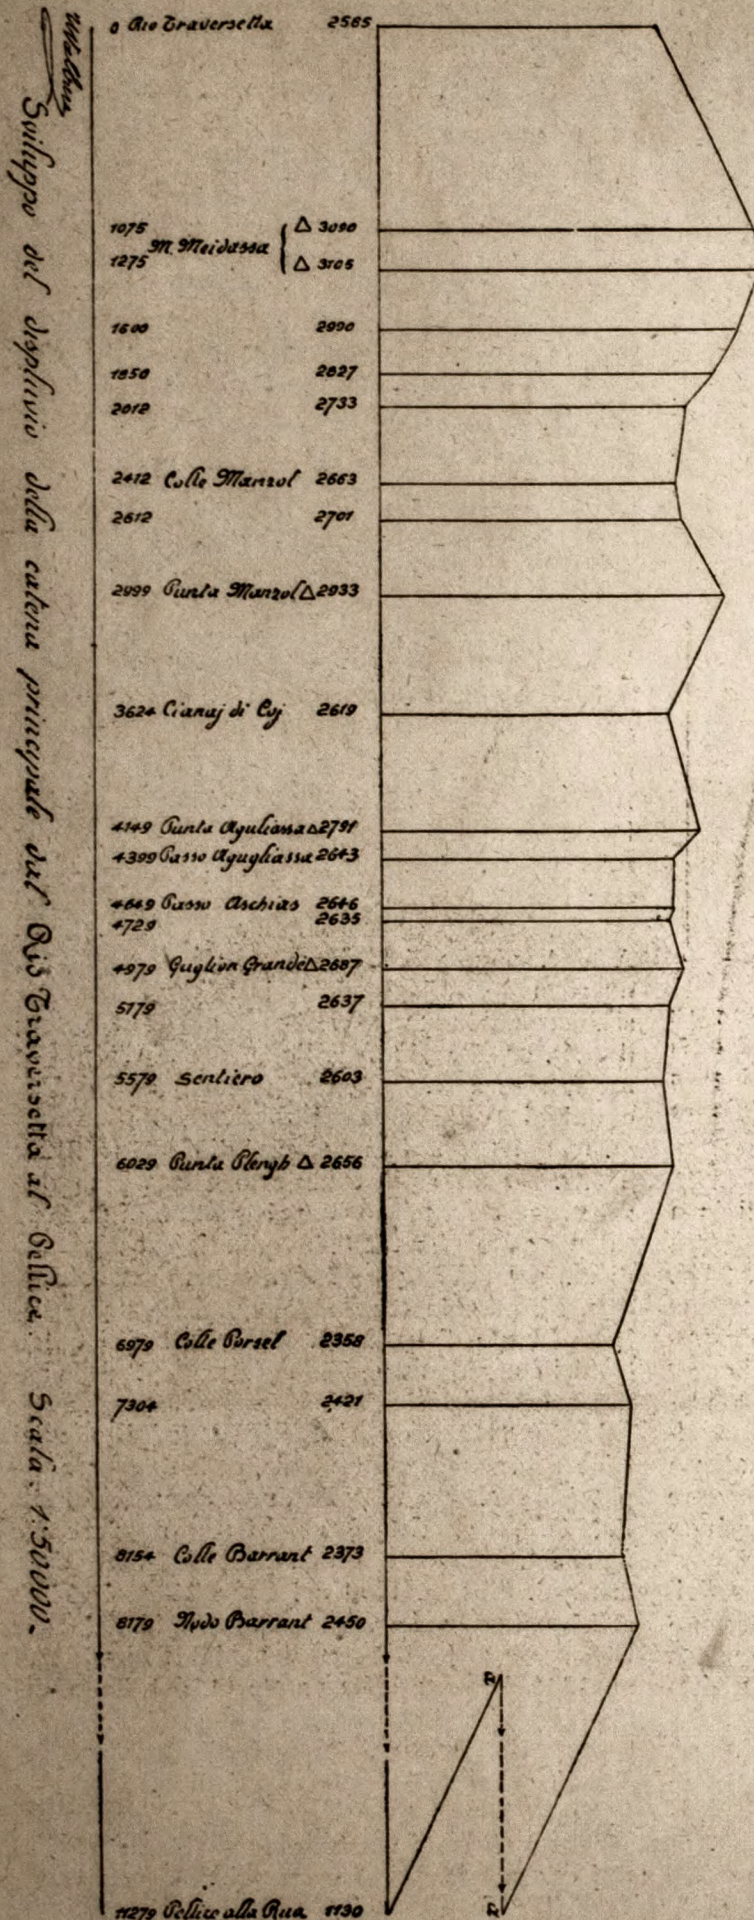 Sviluppo del displuvio della catena principale dal Rio Traversetta al Pellice. Scala 1:50000.
0 Rio Traversetta 2565
1075 △ 3090
M. Meidassa
1275 △ 3105
1600 2990
1850 2827
2012 2733
2412 Colle Manzol 2663
2612 2701
2999 Punta Manzol △ 2933
3624 Cianaj di Coj 2619
4149 Punta Aguliassa △ 2791
4399 Passo Agugliassa 2643
4649 Passo Aschias 2646
4729 2635
4979 Guglion Grande △ 2687
5179 2637
5579 Sentiero 2603
6029 Punta Plengh △ 2656
6979 Colle Porsel 2358
7304 2421
8154 Colle Barrant 2373
8179 Nodo Barrant 2450
R
R
11279 Pellice alla Rua 1130